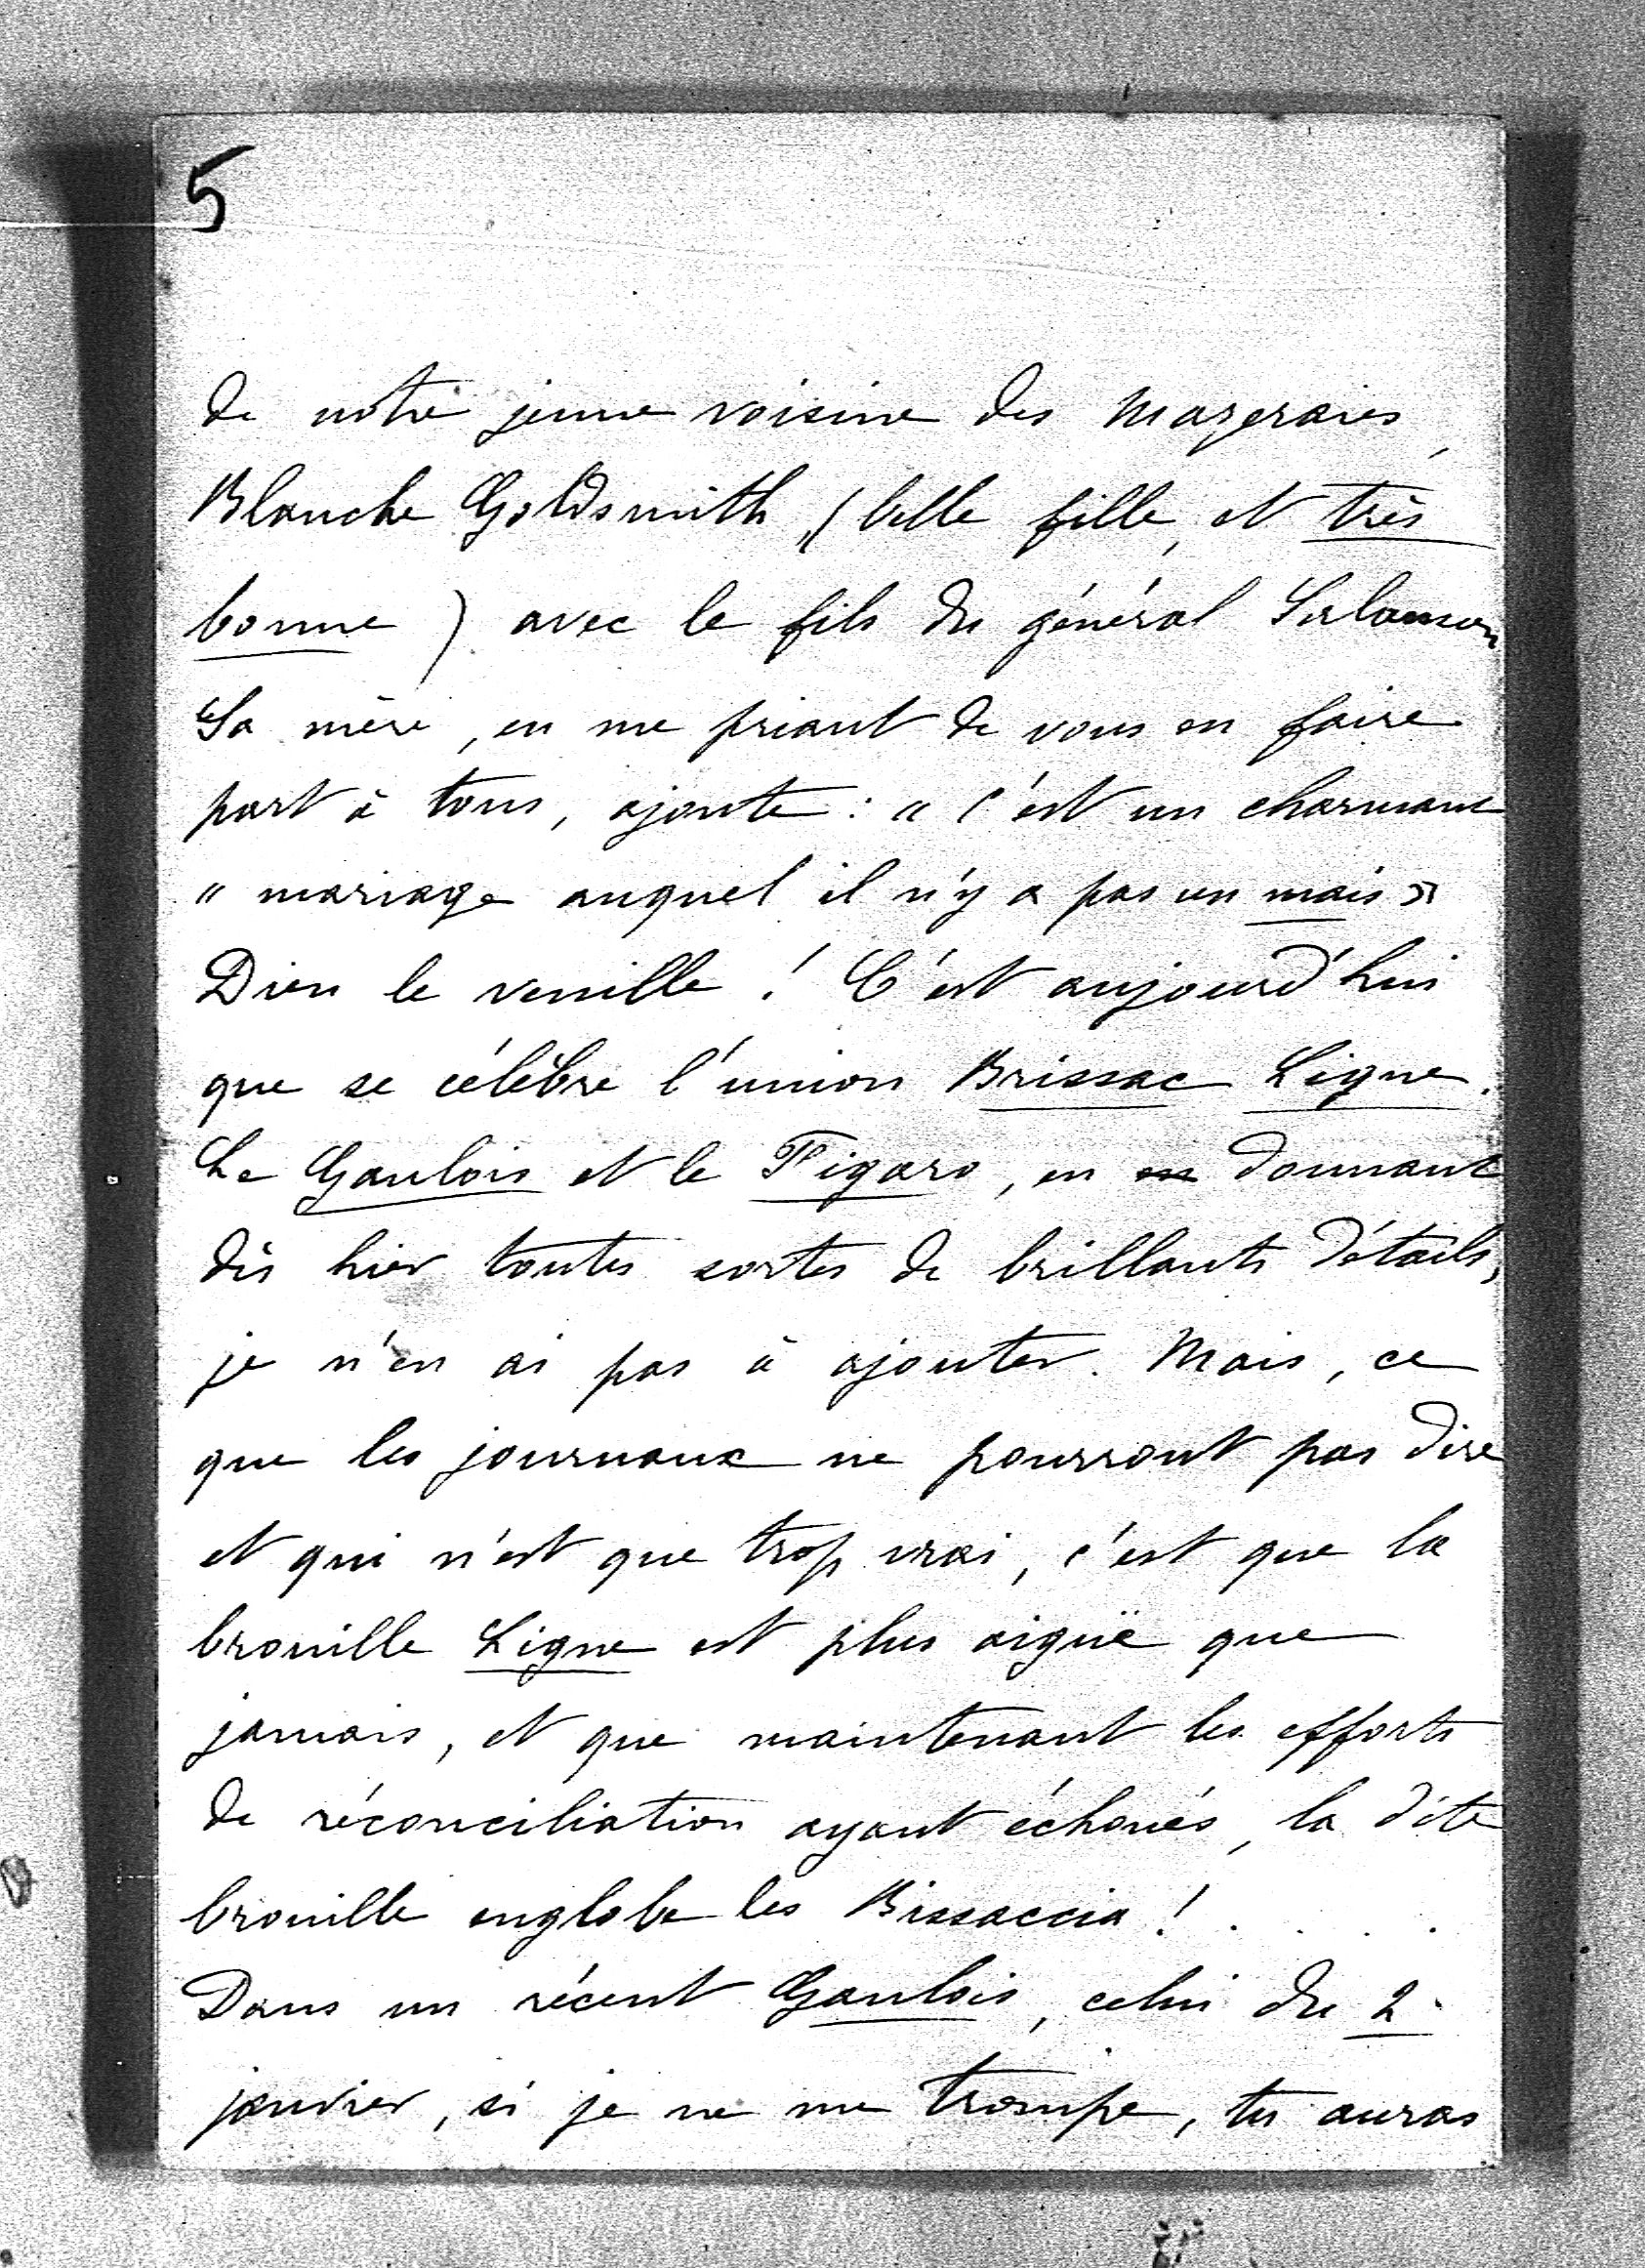 5
de notre jeune voisine des Mazeraies,
Blanche Goldsmith, (belle fille, et très
bonne) avec le fils du général Salomon
Sa mère, en me priant de vous en faire
part à tous, ajoute : " C'est un charmant
" mariage auquel il n'y a pas un mais »
Dieu le veuille ! C'est aujourd'hui
que se célèbre l'union Brissac Ligne.
Le Gaulois et le Figaro, en donnant
dès hier toutes sortes de brillants détails,
je n'en ai pas à ajouter. Mais, ce
que les journaux ne pourront pas dire
et qui n'est que trop vrai, c'est que la
brouille Ligne est plus aiguë que
jamais, et que maintenant les efforts
de réconciliation ayant échoués, la dite
brouille englobe les Bissaccia ! . . . .
Dans un récent Gaulois, celui du 2
janvier, si je ne me trompe, tu auras